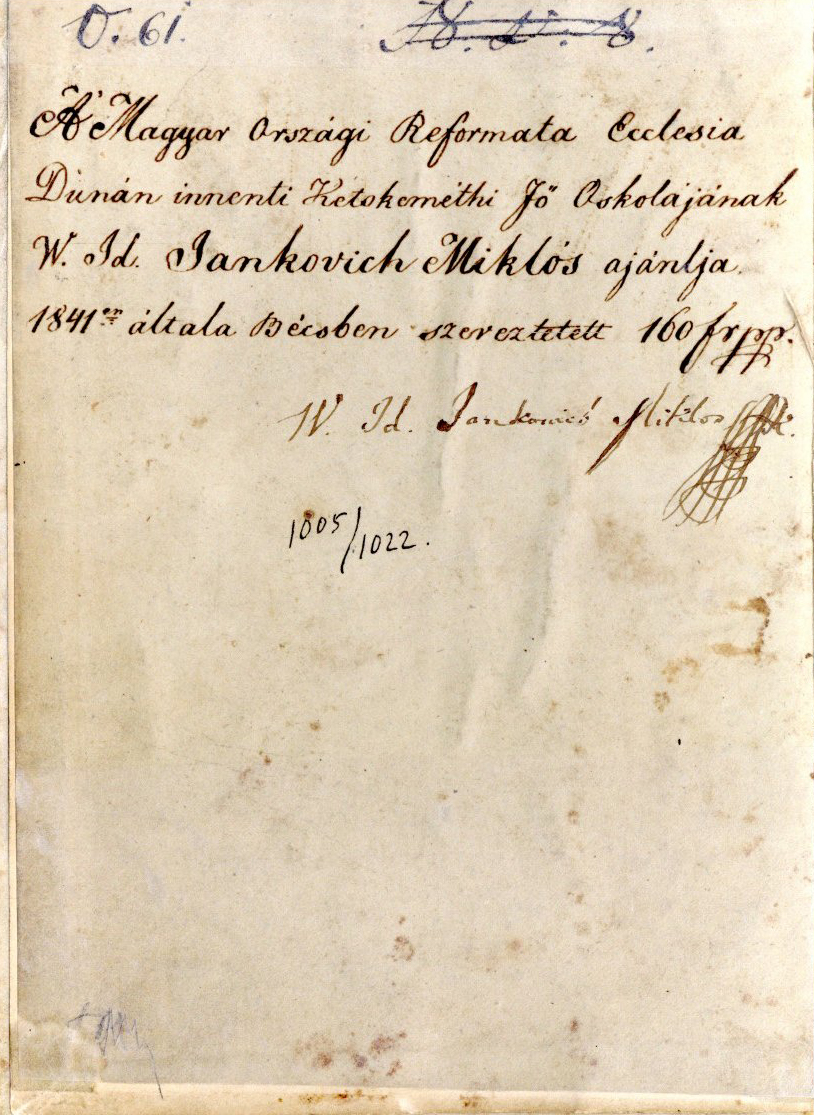 O. 61.
A' Magyar Országi Reformata Ecclesia
Dunán innenti Ketskeméthi Fő Oskolájának
W. Id. Jankovich Miklós ajánlja.
1841en általa Bécsben szereztetett 160 frpp.
W. Id. Jankovich Miklos
1005/1022.